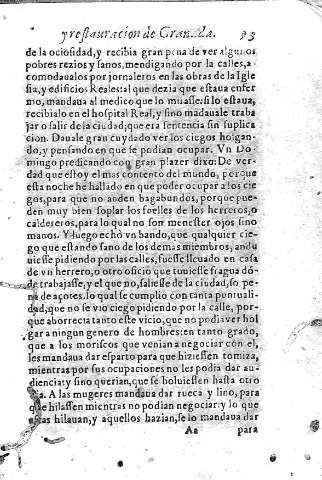 y restauracion de Granada. 93
de la ociosidad, y recibia gran pena de ver algunos
pobres rezios y sanos, mendigando por la calles, a-
comodaualos por jornaleros en las obras de la Igle
sia, y edificios Reales: al que dezia que estaua enfer
mo, mandaua al medico que lo : si lo estaua,
recibialo en el hospital Real, y sino madauale traba
jar o salir de la ciudad; que era sentencia sin suplica
cion. Dauale gran cuydado ver los ciegos holgan-
do, y pensando en que se podian ocupar. Vn Do-
mingo predicando con gran plazer dixo: De ver-
dad que estoy el mas contento del mundo, porque
esta noche he hallado en que poder ocupar a los cie
gos, para que no anden bagabundos, porque pue-
den muy bien soplar los foelles de los herreros, o
caldereros, para lo qual no son menester ojos sino
manos. Y luego echò vn bando, que qualquier cie-
go que estando sano de los demas miembros, andu
uiesse pidiendo por las calles, fuesse lleuado en casa
de vn herrero, o otro oficio que touiesse fragua dō-
de trabajasse, y el que no, saliesse de la ciudad, so pe-
na de açotes. lo qual se cumplio con tanta puntuali-
dad, que no se vio ciego pidiendo por la calle, por-
que aborrecia tanto este vicio, que no podia ver hol
gar a ningun genero de hombres: en tanto grado,
que a los moriscos que venian a negociar con el,
les mandaua dar esparto para que hiziessen tomiza,
mientras por sus ocupaciones no les podia dar au-
diencia: y sino querian, que se boluiessen hasta otro
dia. A las mugeres mandaua dar rueca y lino, para
que hilassen mientras no podian negociar: y lo que
estas hilauan, y aquellos hazian, se lo mandaua dar
Aa para